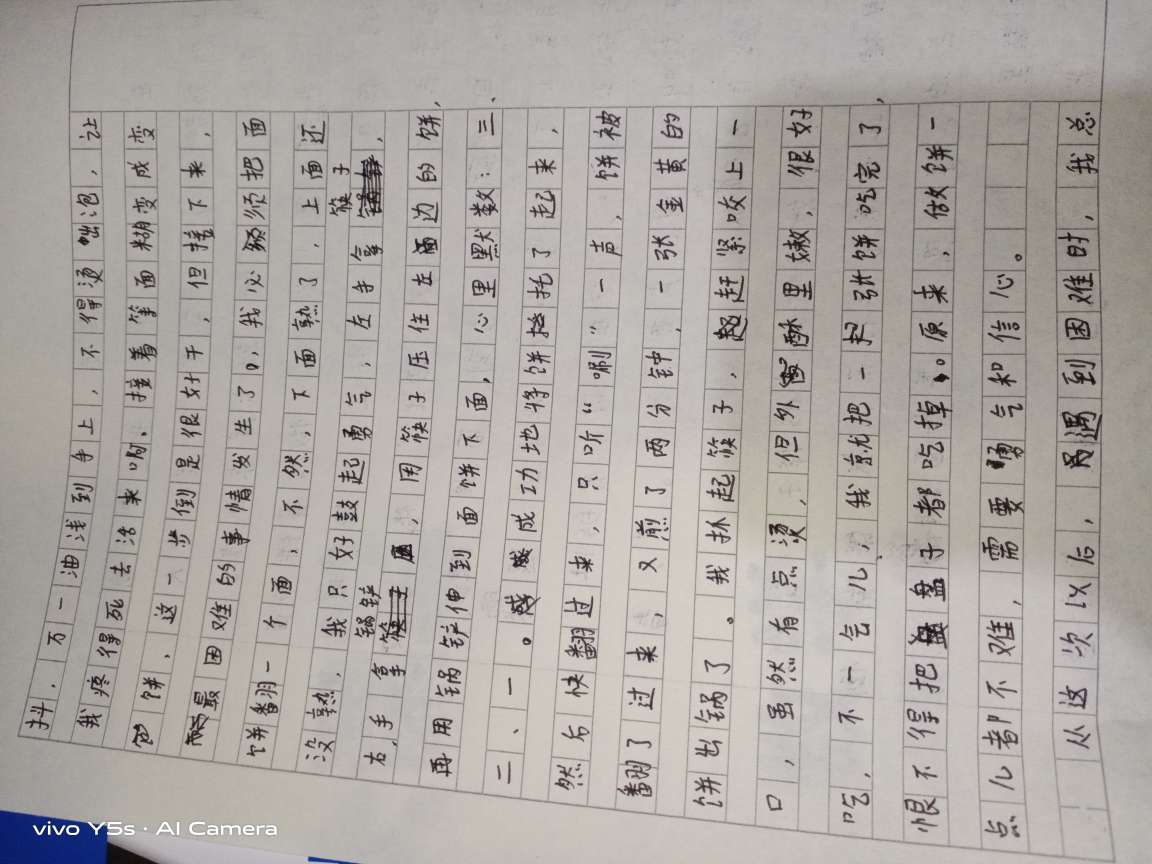 抖，万一油浅到手上，不得烫出泡，让
我疼得死去活来啊。接着等面糊变成变
饼，这一步倒是很好干，但接下来，
最困难的事情发生了。我必须须把面
饼翻一个面，不然，下面熟了，上面还
没熟，我只好鼓起勇气，左手拿筷子，
右手拿锅铲，用筷子压住左边的饼，
再用锅铲伸到面饼下面，心里默数：三
、二、一。成功地将饼托了起来，
然后快翻过来，只听“唰”一声，饼被
翻了过来，又煎了两分钟，一张金黄的
饼出锅了。我抓起筷子，赶紧咬上一
口，虽然有点烫，但外酥里嫩，很好
吃，不一会儿，我就把一张饼吃完了，
恨不得把盘子都吃掉。原来，做饼一
点儿都不难，需要勇气和信心。
从这次以后，遇到困难时，我总
vivo Y5s · AI Camera